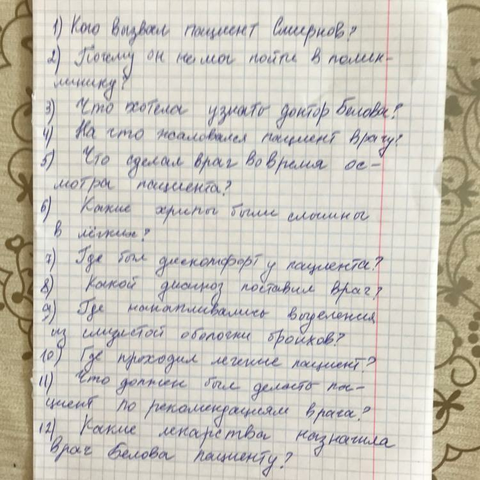 1) Кого вызвал пациент Смирнов?
2) Почему он не мог пойти в полик-
линику?
3) Что хотела узнать доктор Белова?
4) На что жаловался пациент врачу?
5) Что сделал врач во время ос-
мотра пациента?
6) Какие хрипы были слышны
в лёгких?
7) Где был дискомфорт у пациента?
8) Какой диагноз поставил врач?
9) Где накапливались выделения
из слизистой оболочки бронхов?
10) Где проходил лечение пациент?
11) Что должен был делать па-
циент по рекомендациям врача?
12) Какие лекарства назначила
врач Белова пациенту?